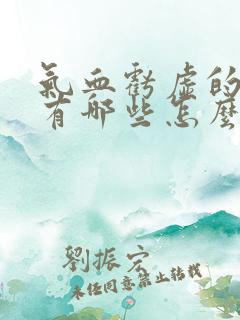 氣血虧虛的
有哪些怎麼
劉振宏
未經同意禁止轉載